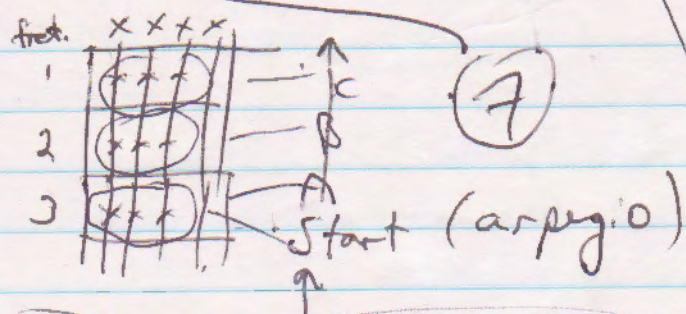 fret. x x x x
1 x x x C
7
2 x x x B
3 x x x A
Start (arpegio)